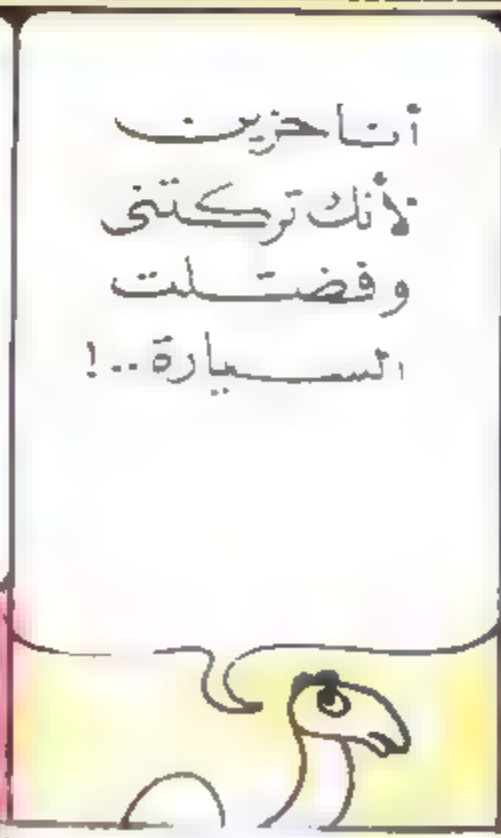 أنا حزين
لأنك تركتنى
وفضلت
السيارة ..!